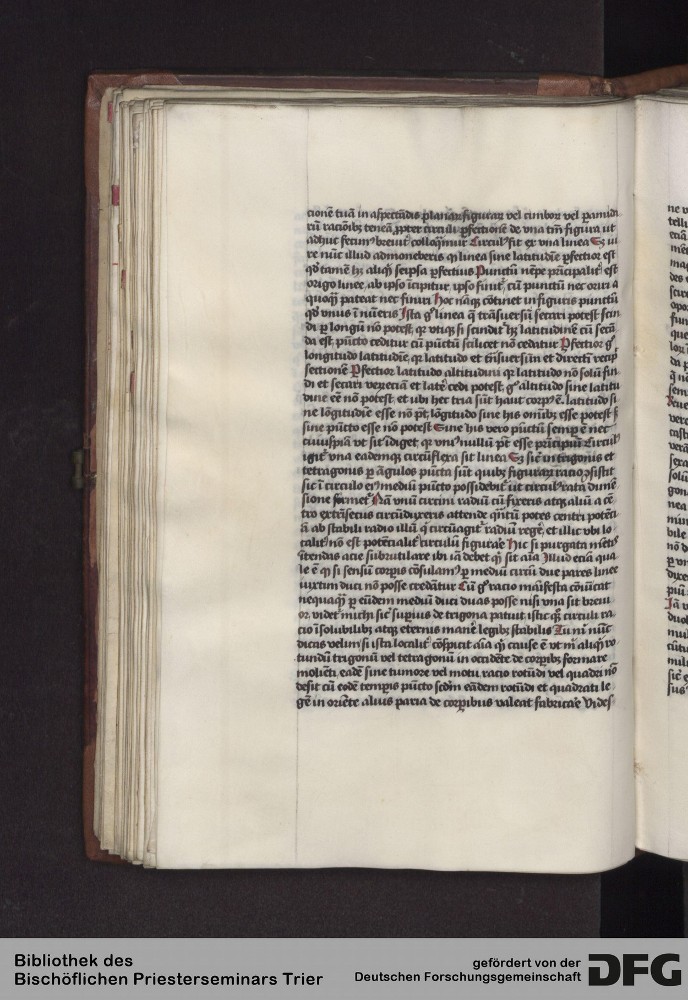 cionē tuā in aspectādis planar figurar vel cimbor vel pamidū
rū raciōibꝫ teneā ꝓpter circuli ꝑfectionē de vna tm̄ figura ut
adhuc fecum breuit colloqͥmur Circulꝰ fit ex vna linea Sꝫ ui
re nūc illud admoneberis ꝙ linea sine latitudīe ꝑfectior est
qd̓ tamē hꝫ aliqͥ seipsa ꝑfectius Punctū nēpe prīcipalit est
origo linee ab ipso īcipitur ipso finit cū punctū nec oriri a
quoqͣ pateat nec finiri Hoc nāqꝫ cōtinet in figuris punctū
qd̓ vnus ī nūeris Ista gͦ linea q̄ trāsuersū secari potest scin
di ꝑ longū nō potest qꝛ utiqꝫ si scindit hꝫ latitudinē cū secā
da est pūcto ceditur cū pūctū scilicet nō cedatur Pfectior gͦ
longitudo latitudīe qꝛ latitudo et trāsuersū et directū recip
sectionē Pfectior latitudo altitudini qꝛ latitudo nō solū fin
di et secari verū eciā et late cedi potest gͦ altitudo sine latitu
dine eē nō potest et ubi hec tria sūt hāut corpꝰ ē latitudo si
ne lōgitudīe esse nō pt̄ lōgitudo sine his omībꝫ esse potest ſ
sine pūcto esse nō potest Sine his vero pūctū semp ē nec
cuiuspiā ut sit īdiget qꝛ vniꝰ nullū pt̄ esse prīcipiū Circulꝰ
igit vna eademqꝫ circūflexa sit linea Sꝫ sic̄ in trigonis et
tetragonis ꝑ āgulos pūcta sūt quibꝫ figurar racio ꝯsistit
sic ī circulo eiꝰ mediū pūcto possidebit ut circulꝰ rata dimē
sione formet Nā vnū circini radiū cū fixeris atqꝫ aliū a cē
tro extrīsecus circūduxeris attende qͣntū potes centri potēci
ā ab stabili radio illū q̄ circūagit radiū rege et illic vbi lo
calit nō est potēcialit circulū figurare Hic si purgata mētis
ītendas acie subrutilare ibi iā debet qͥ sit aīa Illud eciā qua
le ē ꝙ si sensū corꝑis cōsulamꝰ ꝑ mediū circū due pares linee
iuxtim duci nō posse credātur Cū gͦ racio maīfesta cōuīcat
nequaqͣ ꝑ eūdem mediū duci duas posse nisi vna sit breui
or videt michi sic̄ suꝑius de trigona patuit istic qꝫ circuli ra
cio īsolubilibꝫ atqꝫ eternis manē legibꝫ stabilis Tu m̄ nūc
dicas velim si ista localit cōspicit aīa qͥ cause ē ut m̄ aliqͥ ro
tundū trigonū vel tetragonū in occidēte de corꝑibꝫ formare
moliēti eadē sine tumore vel motu racio rotūdi vel quadri nō
desit cū eodē tempis pūcto scdm eādem rotūdi et quadrati le
gē in oriēte alius paria de corꝑibus valeat fabricare Vides
Bibliothek des
Bischöflichen Priesterseminars Trier
gefördert von der
Deutschen Forschungsgemeinschaft
DFG